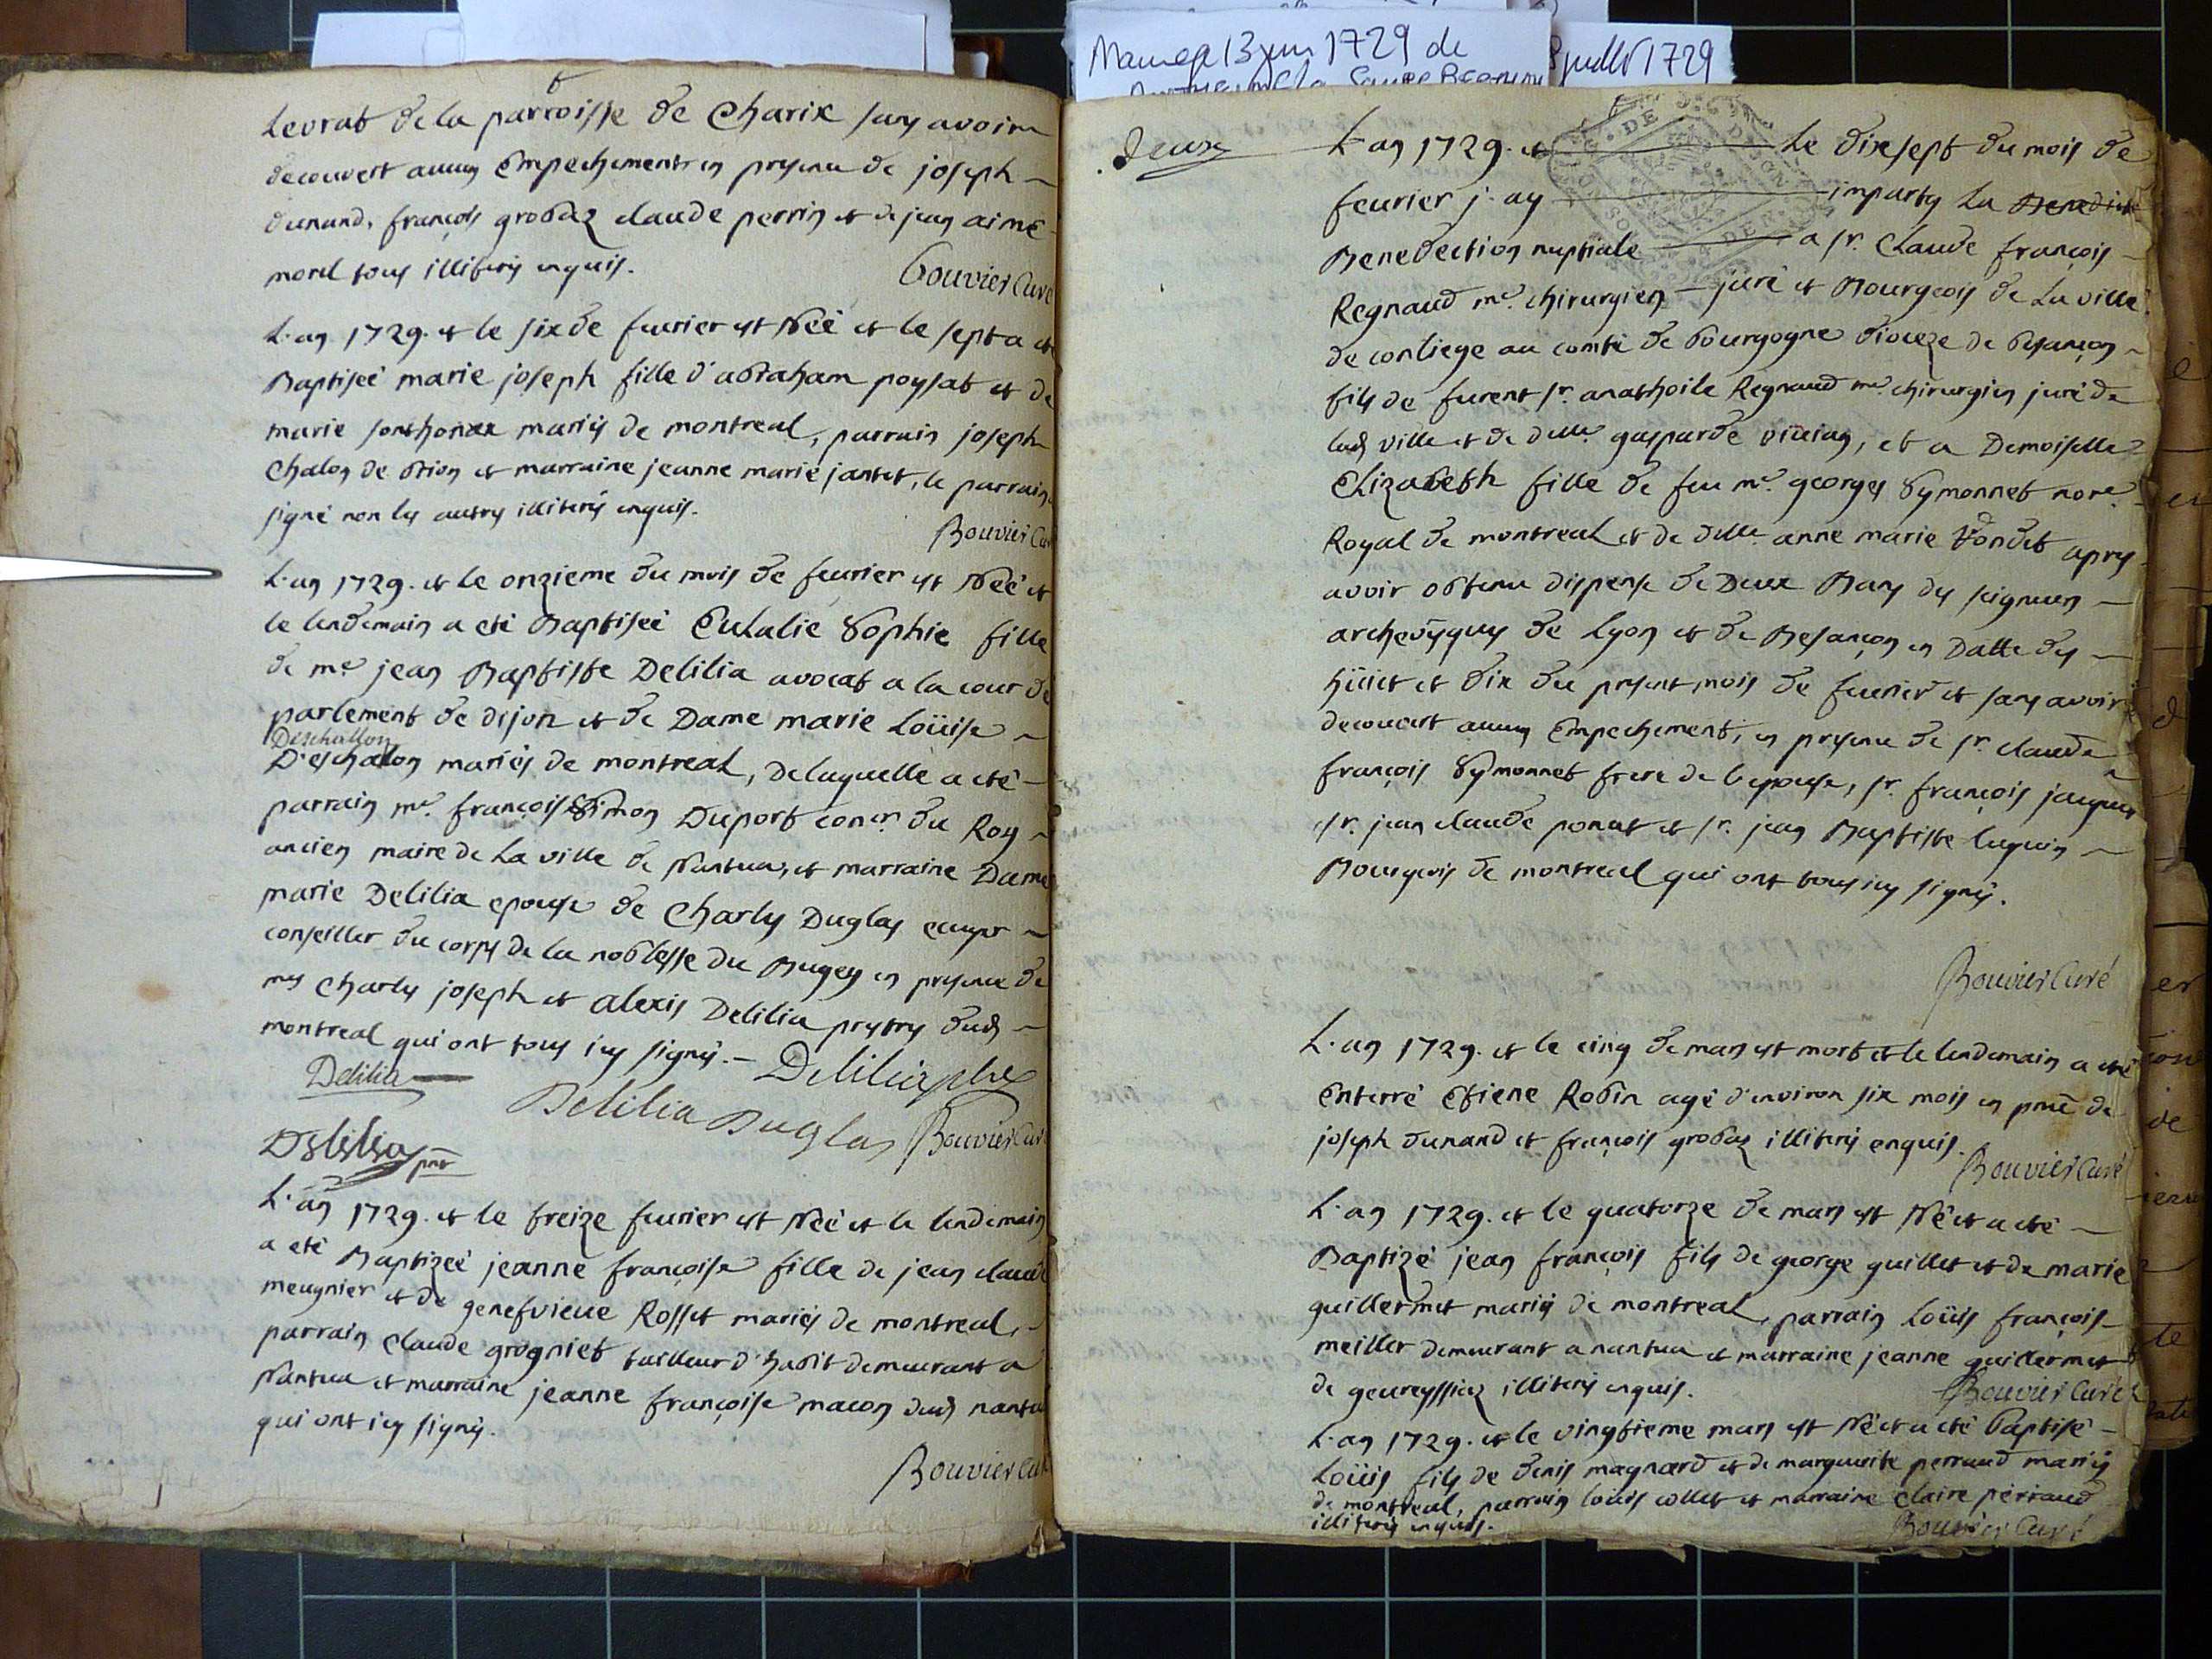 Levrat de la parroisse de Charix sans avoir
decouvert aucun Empechements en presence de joseph
dunand, françois grobaz claude perrin et de jean aimé
morel tous illiterés enquis.
Bouvier Curé
L'an 1729. et le six de feuvrier est Née et le sept a eté
Baptiseé marie joseph fille d'abraham poysat et de
marie sonthonax mariés de montreal, parrain joseph
Chalon de Brion et marraine jeanne marie jantet, le parrain
signé non les autres illiterés enquis.
Bouvier Curé
L'an 1729. et le onzieme du mois de feuvrier est Neé et
le lendemain a eté Baptiseé Eulalie Sophie fille
de me jean Baptiste Delilia avocat a la cour de
parlement de dijon et de Dame marie Loüise
Deschallon
D'eschalon mariés de montreal, de laquelle a eté
parrain me. françois Simon Duport coner. du Roy
ancien maire de La ville de Nantua, et marraine Dame
marie Delilia epouse de Charles Duglas ecuyer
conseiller du corps de la noblesse du Bugey en presence de
mes Charles joseph et Alexis Delilia prestres dud
montreal qui ont tous icy signés.
Delilia
Delilia pbre
Delilia Duglas
Bouvier Curé
Delilia pnt
L'an 1729. et le treize feuvrier est Neé et le lendemain
a eté Baptizeé jeanne françoise fille de jean claude
meugnier et de genefvieue Rosset mariés de montreal,
parrain Claude grogniet tailleur d'habit demeurant a
Nantua et marraine jeanne françoise macon dud nantua
qui ont icy signés.
Bouvier Curé
Mariage 13 juin 1729 de
8 juillet 1729
deux
L'an 1729. et Le dixsept du mois de
feuvrier j'ay imparty La Benedict
Benediction nuptiale a sr. Claude françois
Regnaud me. chirurgien juré et Bourgeois de La ville
de conliege au comté de bourgogne dioceze de Besançon
fils de furent sr. anathoile Regnaud me. chirurgien juré de
lad ville et de dlle. gasparde vivian, et a Demoiselle
Elizabeth fille de feu me. georges Symonnet nore.
Royal de montreal et de dlle anne marie Vondet apres
avoir obtenu dispense de Deux Bans des seigneurs
archevesques de Lyon et de Besançon en Datte des
huict et dix du present mois de feuvrier et sans avoir
decouvert aucun Empechement, en presence de sr. claude
françois Symonnet frere de l'epouse, sr. françois jacquet
sr. jean claude ponat et sr. jean Baptiste luquin
Bourgeois de montreal qui ont tous icy signés.
Bouvier Curé
L'an 1729. et le cinq de mars est mort et le lendemain a eté
Enterré Etiene Robin agé d'environ six mois en pnce de
joseph dunand et françois grobaz illiterés enquis.
Bouvier Curé
L'an 1729. et le quatorze de mars est Né et a eté
Baptizé jean françois fils de george guillet et de marie
guillermet mariés de montreal, parrain Loüis françois
meiller demeurant a nantua et marraine jeanne guillermet
de geureyssiaz illiterés enquis.
Bouvier Curé
L'an 1729. et le vingtieme mars est Né et a eté Baptisé
Loüis fils de denis maynard et de marguerite perraud mariés
de montreal, parrain loüis collet et marraine Claire perraud
illiterés enquis.
Bouvier Curé